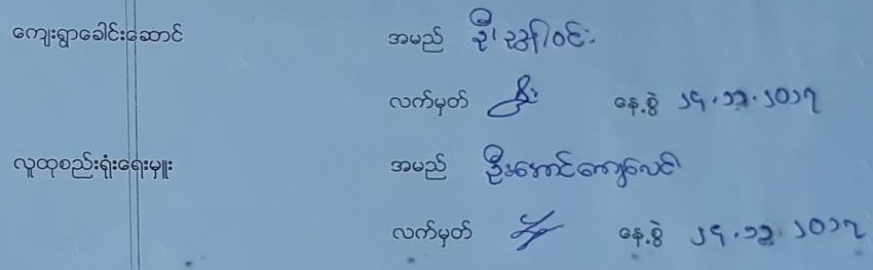 ကျေးရွာခေါင်းဆောင် အမည် ဦး ဝင်း
လက်မှတ် နေ့စွဲ ၂၄.၁၁.၂၀၁၇
လူထုစည်းရုံးရေးမှူး အမည် ဦးအောင်ကျော်လင်း
လက်မှတ် နေ့စွဲ ၂၄.၁၁.၂၀၁၇